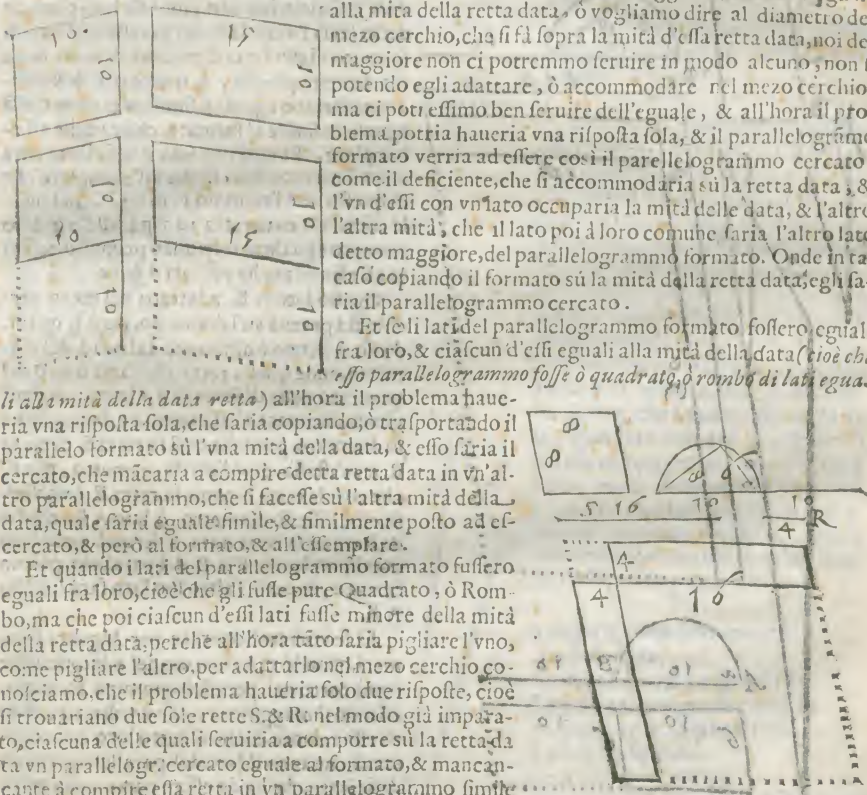 alla mita della retta data, ò vogliamo dire al diametro de
mezo cerchio, che si fà sopra la mità d'essa retta data, noi de
maggiore non ci potremmo seruire in modo alcuno, non
potendo egli adattare, ò accommodare nel mezo cerchio
ma ci potressimo ben seruire dell'eguale, & all'hora il pro
blema potria haueria vna risposta sola, & il parallelográmo
formato verria ad essere così il parellelogrammo cercato
come il deficiente, che si accommodaria sù la retta data, &
l'vn d'essi con vn lato occuparia la mità delle data, & l'altro
l'altra mità, che il lato poi à loro comune saria l'altro lato
detto maggiore, del parallelogrammo formato. Onde in ta
caso copiando il formato sù la mità della retta data, egli sa
ria il parallelogrammo cercato.
Et se li lati del parallelogrammo formato fossero egual
fra loro, & ciascun d'essi eguali alla mità della data (cioè che
esso parallelogrammo fosse ò quadrato, ò rombo di lati egua
li alla mità della data retta) all'hora il problema haue-
ria vna risposta sola, che saria copiando, ò trasportando il
parallelo formato sù l'vna mità della data, & esso saria il
cercato, che mácaria a compire detta retta data in vn'al-
tro parallelogrammo, che si facesse sù l'altra mità della
data, quale saria eguale simile, & similmente posto ad es-
cercato, & però al formato, & all'essemplare.
Et quando i lati del parallelogrammo formato fussero
eguali fra loro, cioè che gli fusse pure Quadrato, ò Rom-
bo, ma che poi ciascun d'essi lati fusse minore della mità
della retta data, perche all'hora táto saria pigliare l'vno,
come pigliare l'altro, per adattarlo nel mezo cerchio co-
nosciamo, che il problema haueria solo due risposte, cioè
si trouariano due sole rette S. & R. nel modo già impara-
to, ciascuna delle quali seruiria a comporre sù la retta da
ta vn parallelogr. cercato eguale al formato, & mancan-
cante à compire essa retta in vn parallelogrammo simile
10
15
10
10
10
10
15
10
10
10
8
8
8
4
5 16
10
10
4
R
4
4
10